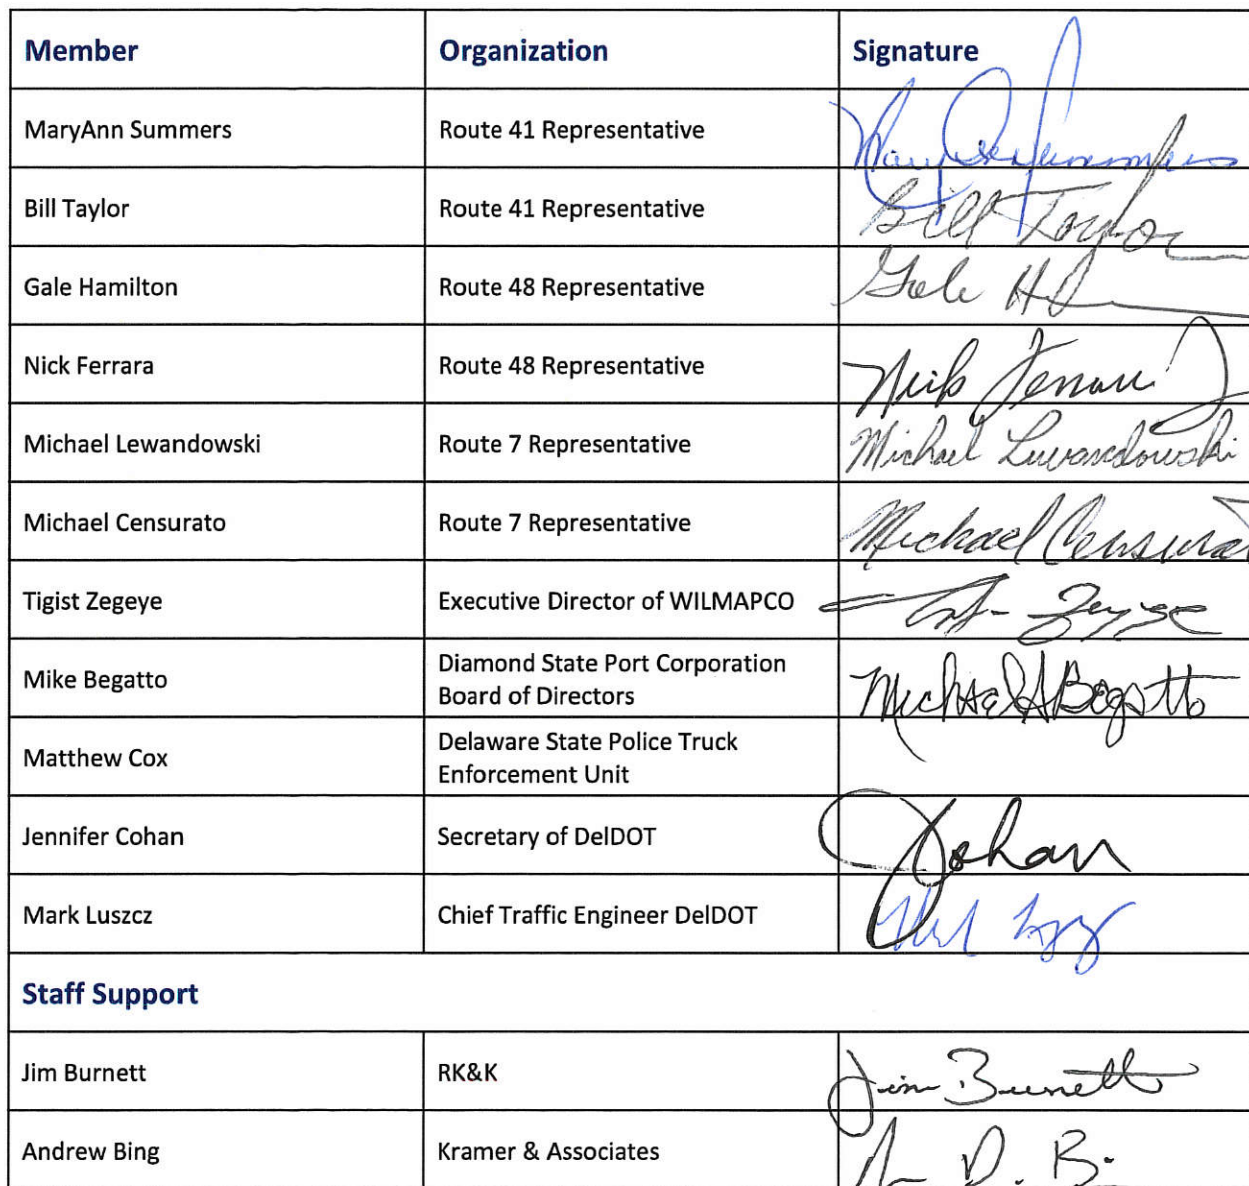 Member Organization Signature
MaryAnn Summers Route 41 Representative Mary Ann Summers
Bill Taylor Route 41 Representative Bill Taylor
Gale Hamilton Route 48 Representative Gale H
Nick Ferrara Route 48 Representative Nick Ferrara
Michael Lewandowski Route 7 Representative Michael Lewandowski
Michael Censurato Route 7 Representative Michael Censurat
Tigist Zegeye Executive Director of WILMAPCO Zegeye
Mike Begatto Diamond State Port Corporation
Board of Directors Michael A Begatto
Matthew Cox Delaware State Police Truck
Enforcement Unit
Jennifer Cohan Secretary of DelDOT JCohan
Mark Luszcz Chief Traffic Engineer DelDOT
Staff Support
Jim Burnett RK&K Jim Burnett
Andrew Bing Kramer & Associates